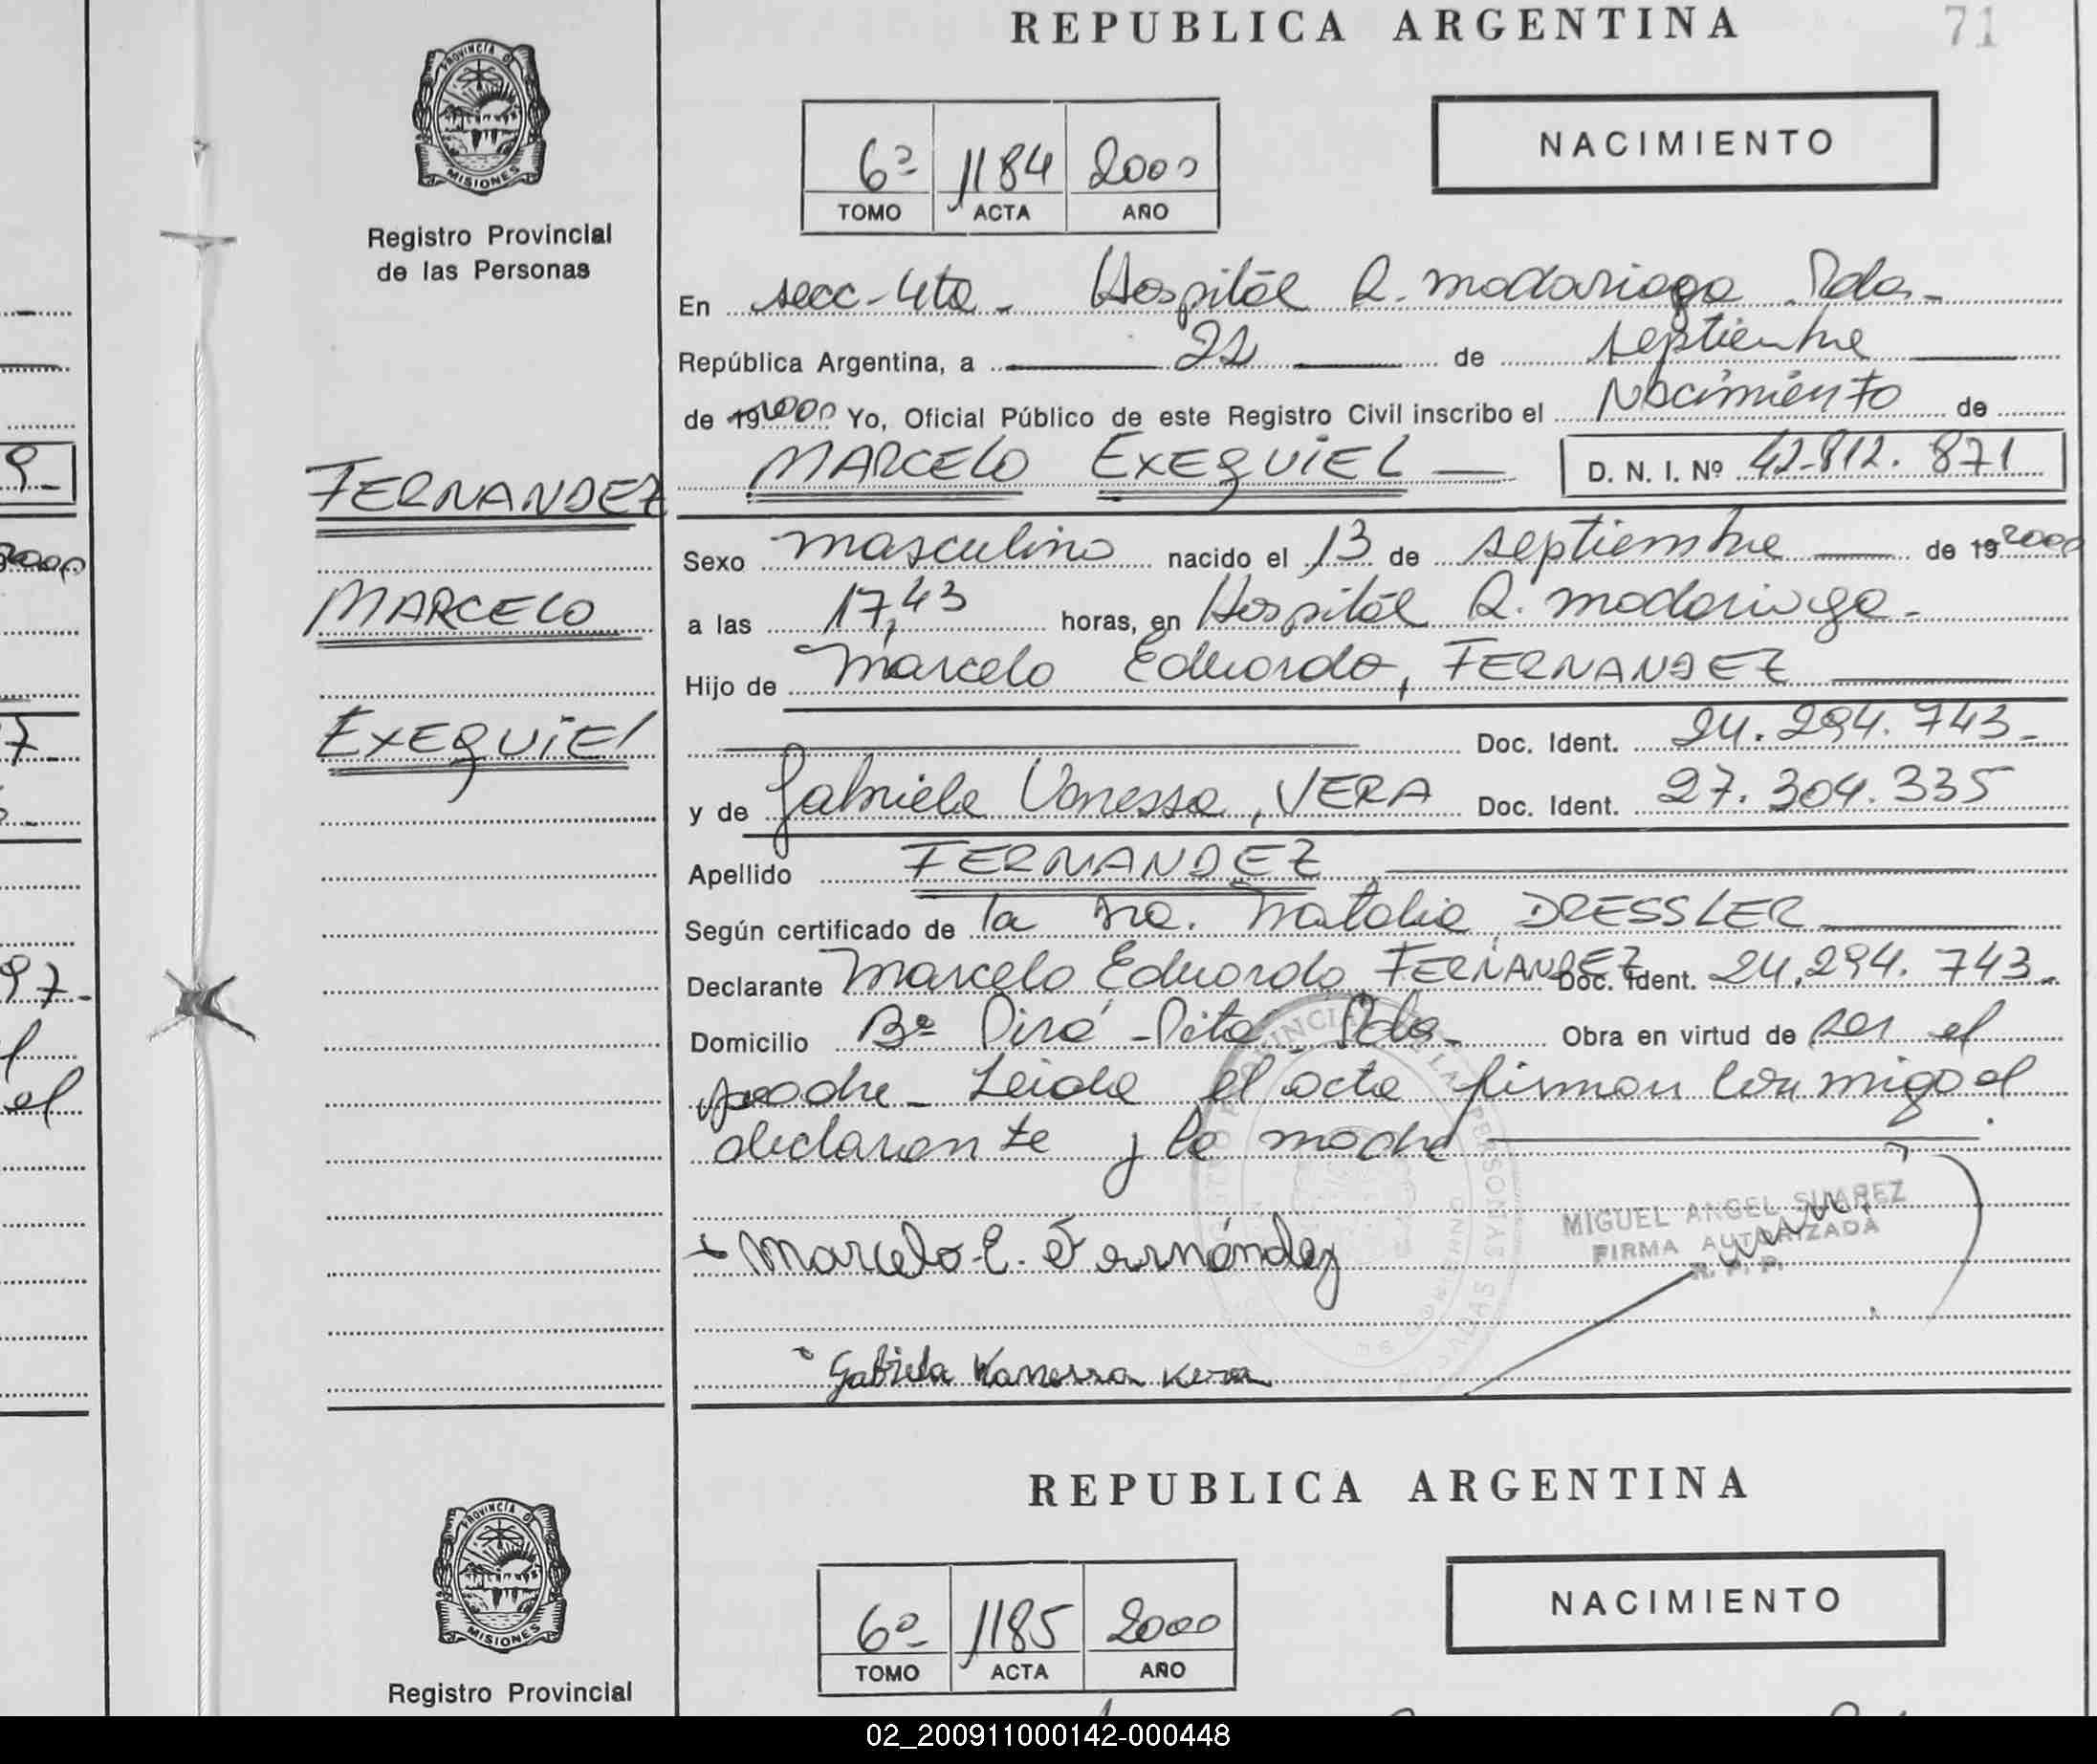 REPUBLICA ARGENTINA
71
PROVINCIA DE
MISIONES
Registro Provincial
de las Personas
6º 1184 2000
TOMO ACTA AÑO
NACIMIENTO
En secc-4ta - Hospital R. Madariaga. Pdas-
República Argentina, a 22 de septiembre
de 19 2000 Yo, Oficial Público de este Registro Civil inscribo el Nacimiento de
MARCELO EXEQUIEL D. N. I. Nº 42.812.871
FERNANDEZ
MARCELO
EXEQUIEL
Sexo masculino nacido el 13 de septiembre de 19 2000
a las 17,43 horas, en Hospital R. Madariaga-
Hijo de Marcelo Eduardo, FERNANDEZ
Doc. Ident. 24.294.743-
y de Gabriela Vanessa, VERA Doc. Ident. 27.304.335
Apellido FERNANDEZ
Según certificado de la Dra. Natalia DRESSLER
Declarante Marcelo Eduardo FERNANDEZ Doc. Ident. 24.294.743-
Domicilio Bº Pirá-Pitá- Pdas- Obra en virtud de ser el
padre- Leida el acta firman conmigo el
declarante y la madre
MIGUEL ANGEL SUAREZ
FIRMA AUTORIZADA
R. P. P.
Marcelo E. Fernández
Gabriela Vanessa Vera
REPUBLICA ARGENTINA
PROVINCIA DE
MISIONES
Registro Provincial
6º- 1185 2000
TOMO ACTA AÑO
NACIMIENTO
02_200911000142-000448